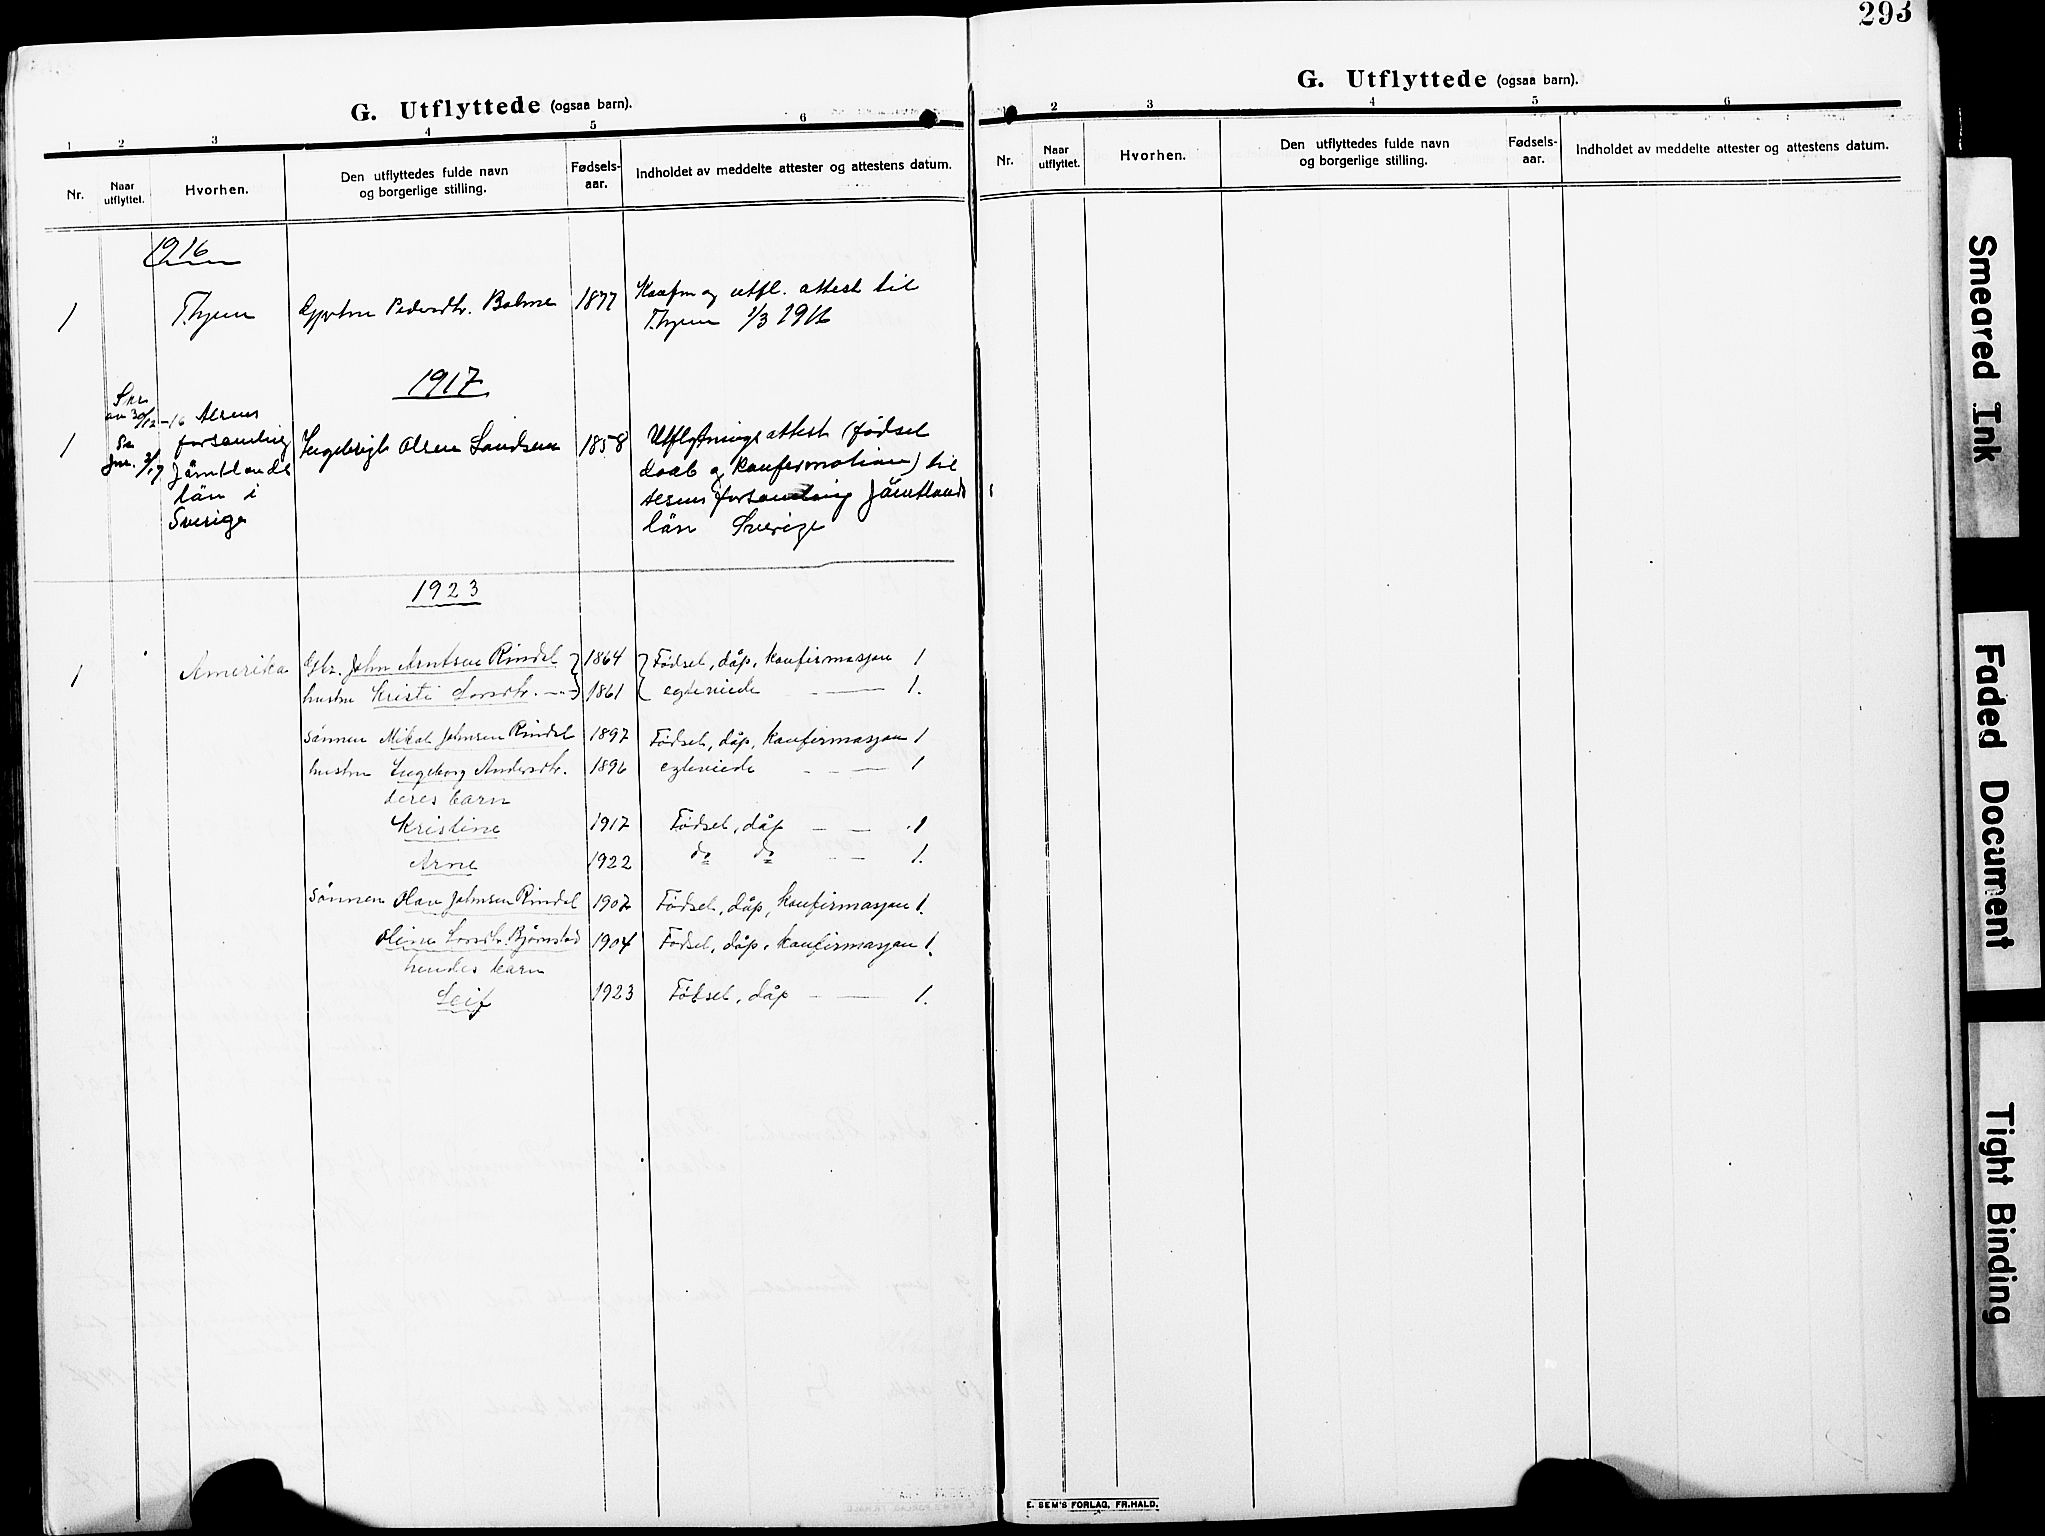 293
G. Utflyttede (ogsaa barn).
1 2 3 4 5 6
Nr.
Naar utflyttet.
Hvorhen.
Den utflyttedes fulde navn og borgerlige stilling.
Fødsels-aar.
Indholdet av meddelte attester og attestens datum.
1916
1 Thjem Pedersdtr. Bolme 1877 Konfm og utfl. attest til
Thjem 1/3 1916
1917
1 30/12-16
forsamling
Jämtlands
län i
Sverige
Ingebrigt Olsen Landsem 1858 Utflytnings attest (fødsel
daab og konfirmation) til
forsamling Jämtlands
län Sverige
1923
1 Amerika Gbr. John Arntsen Rindal 1864 Fødsel, dåp, konfirmasjon 1
hustru Kristi Larsdtr. -"- 1861 egteviede — 1.
sönnen Mikal Johnsen Rindal 1897 Fødsel, dåp, konfirmasjon 1
hustru Ingeborg Andersdtr. 1896 egteviede — 1
deres barn
Kristine 1917 Fødsel, dåp — — 1
Arne 1922 do do — 1.
sönnen Olav Johnsen Rindal 1907 Fødsel, dåp, konfirmasjon 1.
Oline Larsdtr. Bjørnstad 1904 Fødsel, dåp, konfirmasjon 1.
hendes barn
Leif 1923 Fødsel, dåp — — 1.
G. Utflyttede (ogsaa barn).
2 3 4 5 6
Nr.
Naar utflyttet.
Hvorhen.
Den utflyttedes fulde navn og borgerlige stilling.
Fødsels-aar.
Indholdet av meddelte attester og attestens datum.
E. SEM'S FORLAG, FR.HALD.
Smeared Ink
Faded Document
Tight Binding